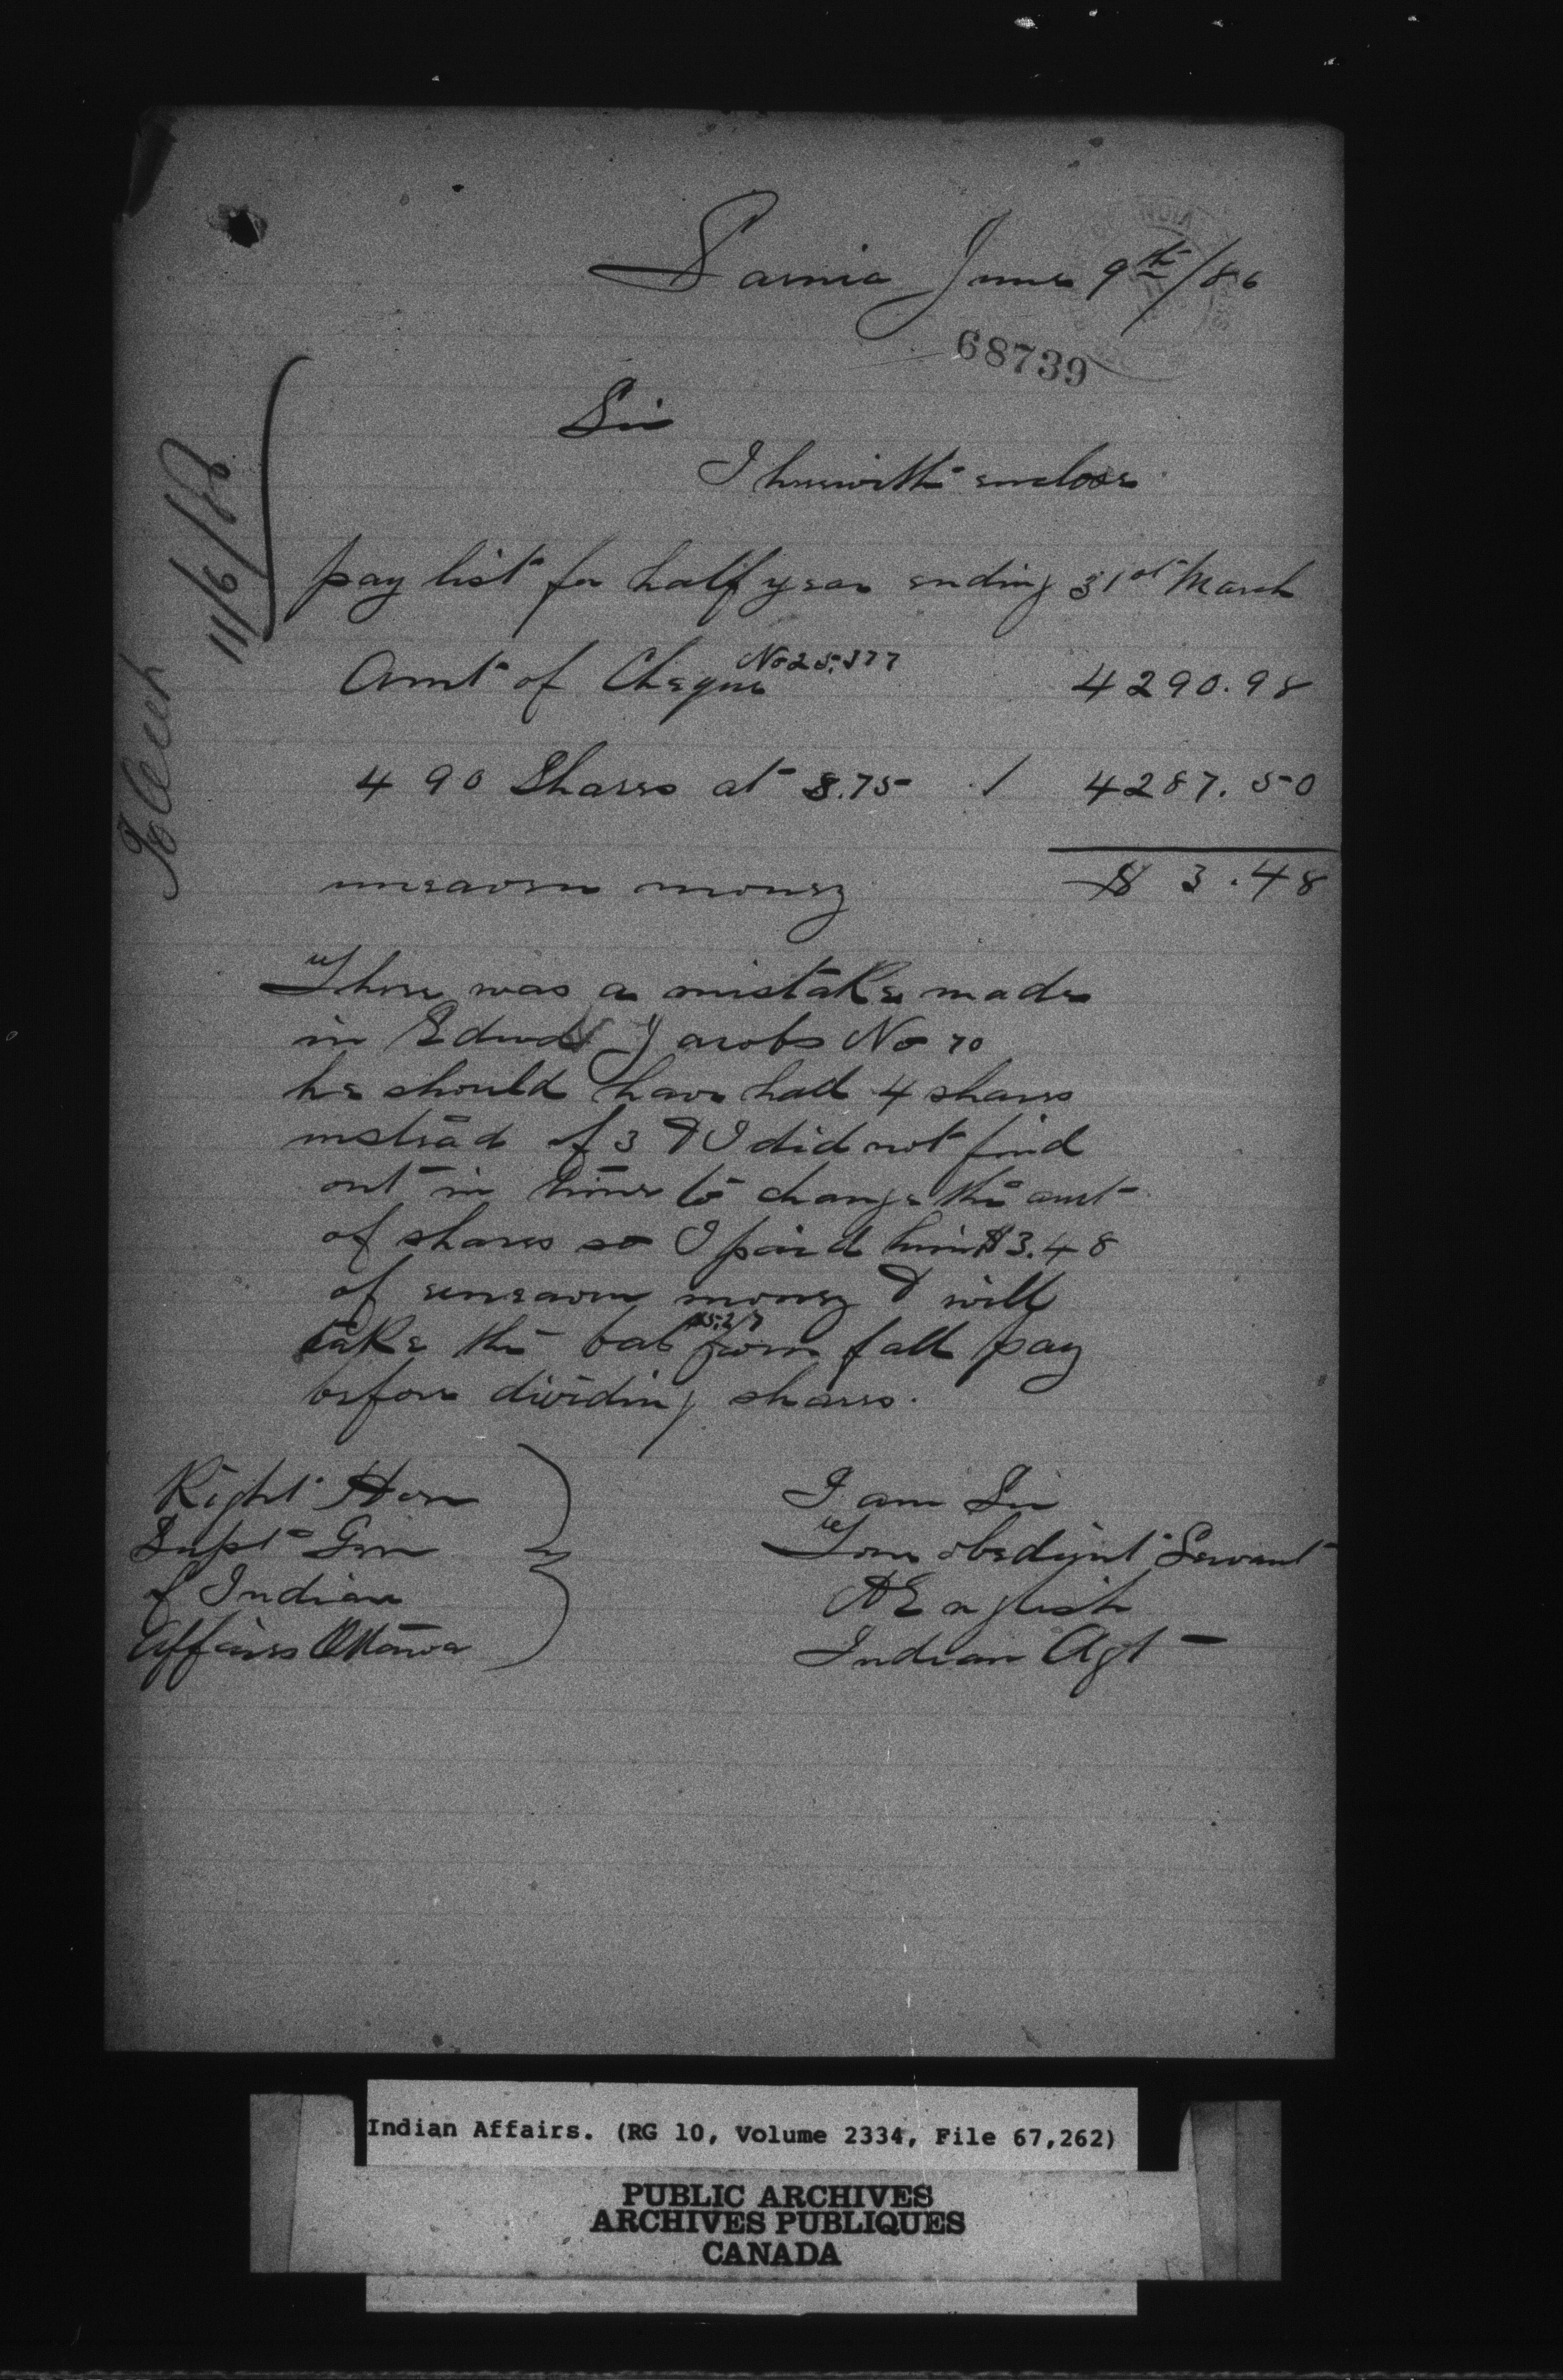 Sarnia June 9th/86
68739
Sir
I herewith enclose
pay list for half year ending 31st March
No 25,377
Amt of Cheque 4290.98
490 Shares at 8.75 / 4287.50
unearn money $ 3.48
There was a mistake made
in Edwd Jacobs No 70
he should have had 4 shares
instead of 3 & I did not find
out in time to change the amt
of shares so I paid him $3.48
of unearn money & will
take the bal $5.27 from fall pay
before dividing shares.
I am Sir
Your obedient Servant
A English
Indian Agt
Right Hon
Supt Gen
of Indian
Affairs Ottawa
11/6/86
Indian Affairs. (RG 10, Volume 2334, File 67,262)
PUBLIC ARCHIVES
ARCHIVES PUBLIQUES
CANADA